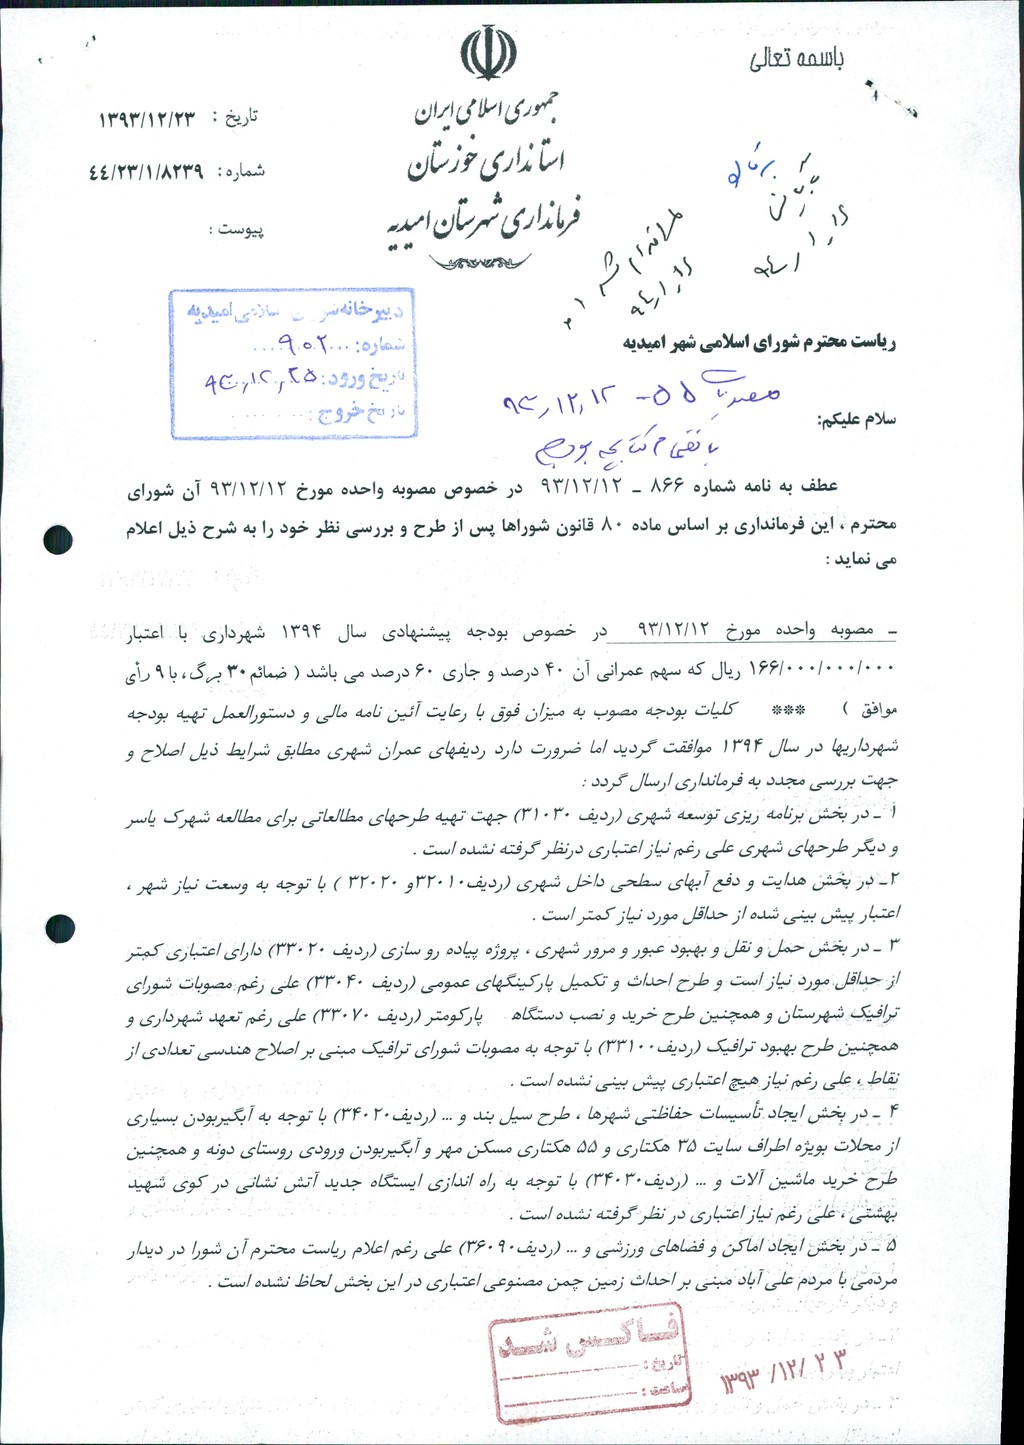 باسمه تعالی
جمهوری اسلامی ایران
استانداری خوزستان
فرمانداری شهرستان امیدیه
تاریخ : ۱۳۹۳/۱۲/۲۳
شماره : ۴۴/۲۳/۱/۸۲۳۹
پیوست :
دبیرخانه شورای اسلامی امیدیه
شماره: ۹۰۲
تاریخ ورود: ۹۳,۱۲,۲۵
تاریخ خروج :
ریاست محترم شورای اسلامی شهر امیدیه
۵۵ - ۹۳,۱۲,۱۲
سلام علیکم:
کتابچه بودجه
عطف به نامه شماره ۸۶۶ ـ ۹۳/۱۲/۱۲ در خصوص مصوبه واحده مورخ ۹۳/۱۲/۱۲ آن شورای
محترم ، این فرمانداری بر اساس ماده ۸۰ قانون شوراها پس از طرح و بررسی نظر خود را به شرح ذیل اعلام
می نماید :
ـ مصوبه واحده مورخ ۹۳/۱۲/۱۲ در خصوص بودجه پیشنهادی سال ۱۳۹۴ شهرداری با اعتبار
۱۶۶/۰۰۰/۰۰۰/۰۰۰ ریال که سهم عمرانی آن ۴۰ درصد و جاری ۶۰ درصد می باشد ( ضمائم ۳۰ برگ ، با ۹ رأی
موافق ) *** کلیات بودجه مصوب به میزان فوق با رعایت آئین نامه مالی و دستورالعمل تهیه بودجه
شهرداریها در سال ۱۳۹۴ موافقت گردید اما ضرورت دارد ردیفهای عمران شهری مطابق شرایط ذیل اصلاح و
جهت بررسی مجدد به فرمانداری ارسال گردد :
۱ ـ در بخش برنامه ریزی توسعه شهری (ردیف ۳۱۰۳۰) جهت تهیه طرحهای مطالعاتی برای مطالعه شهرک یاسر
و دیگر طرحهای شهری علی رغم نیاز اعتباری درنظر گرفته نشده است .
۲ـ در بخش هدایت و دفع آبهای سطحی داخل شهری (ردیف۳۲۰۱۰و ۳۲۰۲۰ ) با توجه به وسعت نیاز شهر ،
اعتبار پیش بینی شده از حداقل مورد نیاز کمتر است .
۳ ـ در بخش حمل و نقل و بهبود عبور و مرور شهری ، پروژه پیاده رو سازی (ردیف ۳۳۰۲۰) دارای اعتباری کمتر
از حداقل مورد نیاز است و طرح احداث و تکمیل پارکینگهای عمومی (ردیف ۳۳۰۴۰) علی رغم مصوبات شورای
ترافیک شهرستان و همچنین طرح خرید و نصب دستگاه پارکومتر (ردیف ۳۳۰۷۰) علی رغم تعهد شهرداری و
همچنین طرح بهبود ترافیک (ردیف۳۳۱۰۰) با توجه به مصوبات شورای ترافیک مبنی بر اصلاح هندسی تعدادی از
نقاط ، علی رغم نیاز هیچ اعتباری پیش بینی نشده است .
۴ ـ در بخش ایجاد تأسیسات حفاظتی شهرها ، طرح سیل بند و ... (ردیف۳۴۰۲۰) با توجه به آبگیربودن بسیاری
از محلات بویژه اطراف سایت ۳۵ هکتاری و ۵۵ هکتاری مسکن مهر و آبگیربودن ورودی روستای دونه و همچنین
طرح خرید ماشین آلات و ... (ردیف۳۴۰۳۰) با توجه به راه اندازی ایستگاه جدید آتش نشانی در کوی شهید
بهشتی ، علی رغم نیاز اعتباری در نظر گرفته نشده است .
۵ ـ در بخش ایجاد اماکن و فضاهای ورزشی و ... (ردیف۳۶۰۹۰) علی رغم اعلام ریاست محترم آن شورا در دیدار
مردمی با مردم علی آباد مبنی بر احداث زمین چمن مصنوعی اعتباری در این بخش لحاظ نشده است .
فاکس شد
تاریخ :
ساعت :
۱۳۹۳/۱۲/۲۳